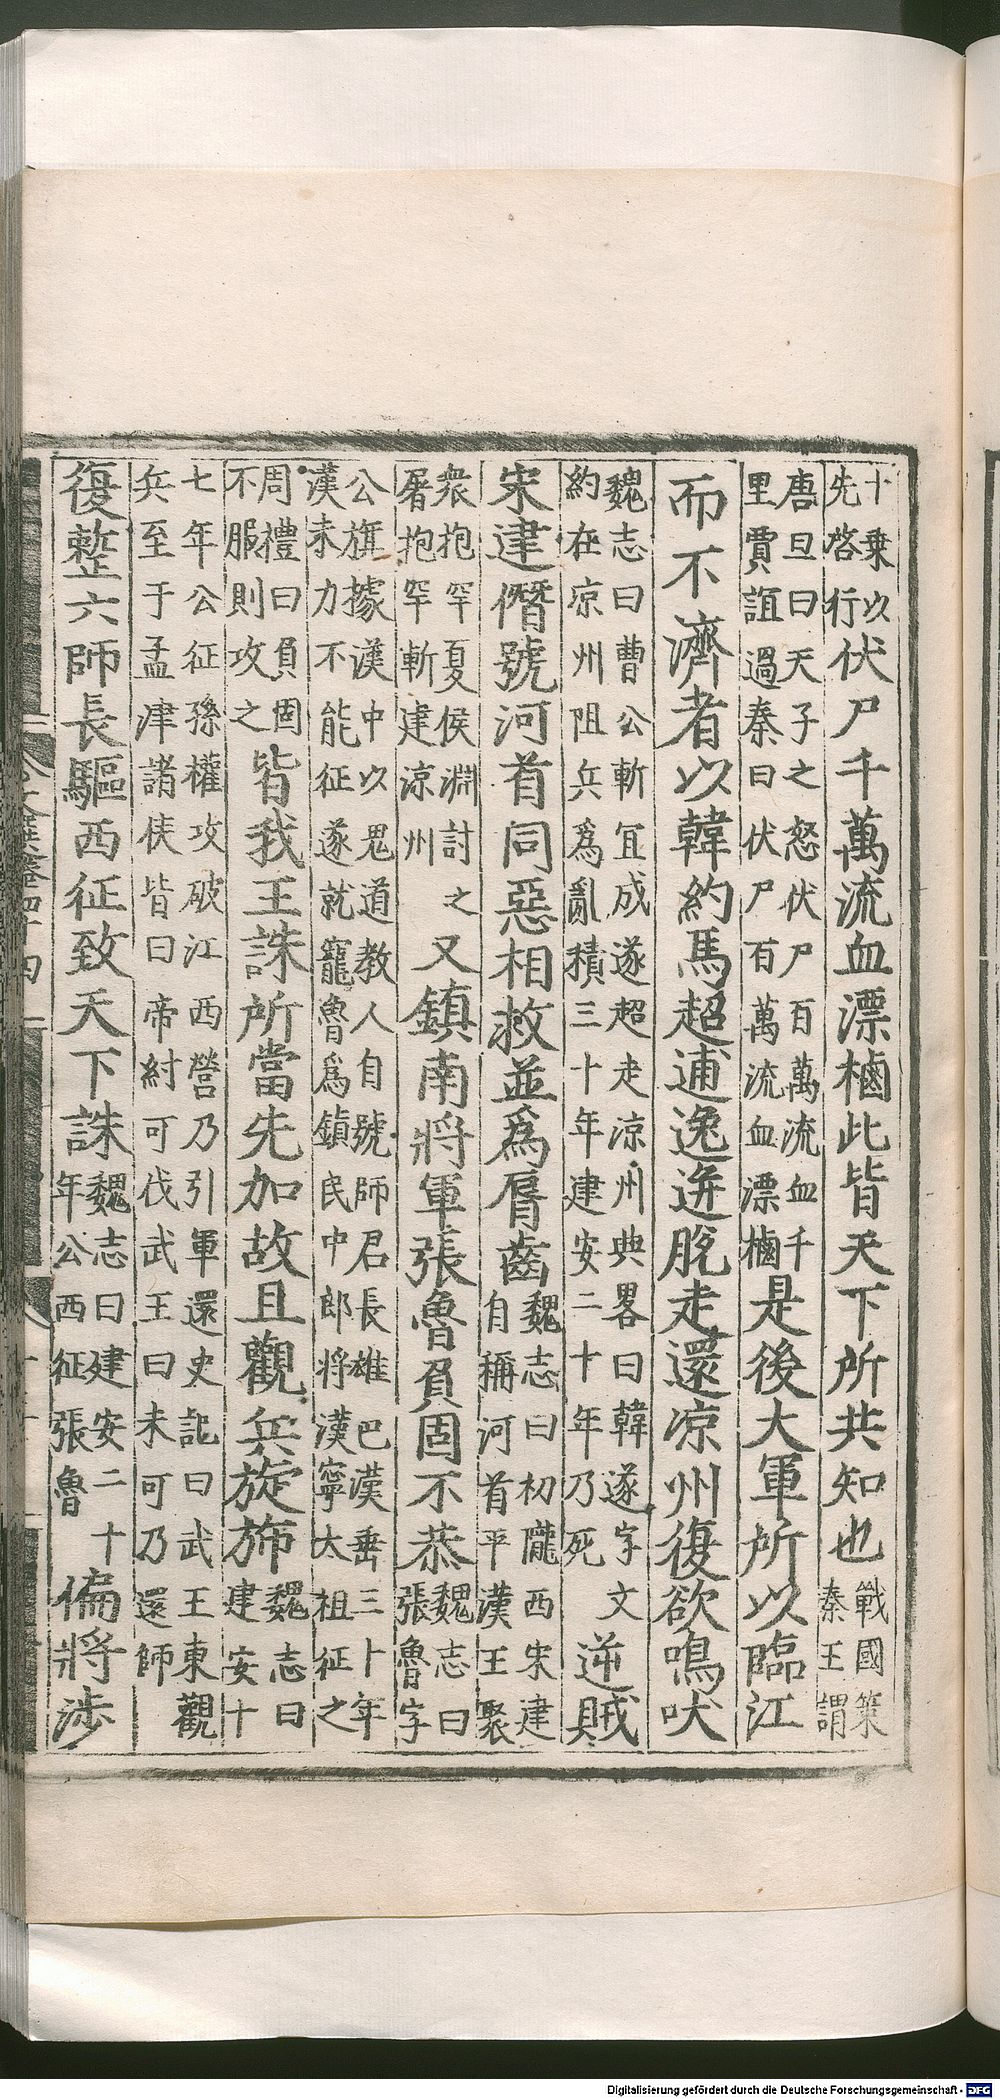 十乗以先啓行伏尸千萬流血漂樐此皆天下所共知也戰國策秦王謂
唐旦曰天子之怒伏尸百萬流血千里賈誼過秦曰伏尸百萬流血漂樐是後大軍所以臨江
而不濟者以韓約馬超逋逸迸脫走還涼州復欲鳴吠
魏志曰曹公斬宜成遂超走涼州典畧曰韓遂字文約在涼州阻兵爲亂積三十年建安二十年乃死逆賊
宋建僭號河首同惡相救並爲脣齒魏志曰初隴西宋建自稱河首平漢王聚
衆抱罕夏侯淵討之屠抱罕斬建涼州又鎮南將軍張魯負固不恭魏志曰張魯字
公旗據漢中以鬼道教人自號師君長雄巴漢垂三十年漢末力不能征遂就寵魯爲鎮民中郎將漢寧太祖征之
周禮曰負固不服則攻之皆我王誅所當先加故且觀兵旋斾魏志曰建安十
七年公征孫權攻破江西營乃引軍還史記曰武王東觀兵至于孟津諸侯皆曰帝紂可伐武王曰未可乃還師
復整六師長驅西征致天下誅魏志曰建安二十年公西征張魯偏將涉
Digitalisierung gefördert durch die Deutsche Forschungsgemeinschaft - DFG